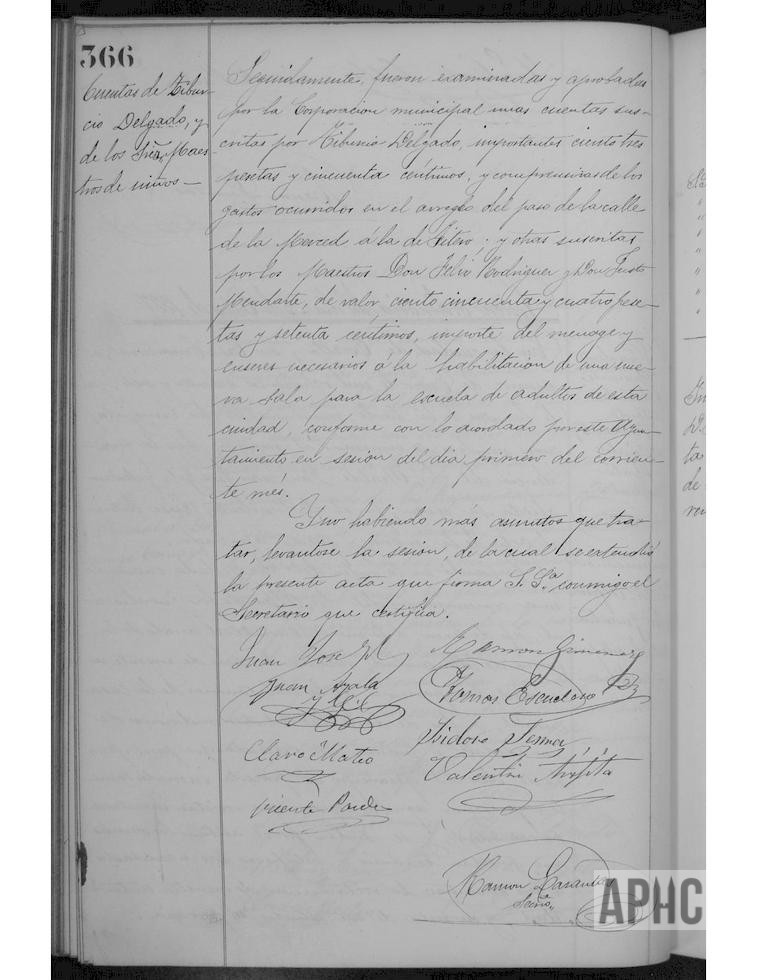 366
Cuentas de Tibur-
cio Delgado, y
de los Sres. Maes-
tros de niños—
Seguidamente, fueron examinadas y aprobadas
por la Corporacion municipal unas cuentas sus-
critas por Tiburcio Delgado, importantes ciento tres
pesetas y cincuenta céntimos, y comprensivas de los
gastos ocurridos en el arreglo del paso de la calle
de la Merced á la de Fitero; y otras suscritas
por los Maestros Don Felix Rodriguez y Don Justo
Mendarte, de valor ciento cincuenta y cuatro pese-
tas y setenta centimos, importe del menage y
enseres necesarios á la habilitacion de una nue-
va sala para la escuela de adultos de esta
ciudad, conforme con lo acordado por este Ayun-
tamiento en sesion del dia primero del corrien-
te més.
Y no habiendo más asuntos que tra-
tar, levantose la sesion, de la cual se extendió
la presente acta que firma S. Sª. conmigo el
Secretario que certifica.
Juan José
Ramon Gimenez
Juan Ayala
y Gil
Tomas Escudero
Claro Mateo
Isidoro
Valentin
Vicente
Ramon
Secrio.
APHC